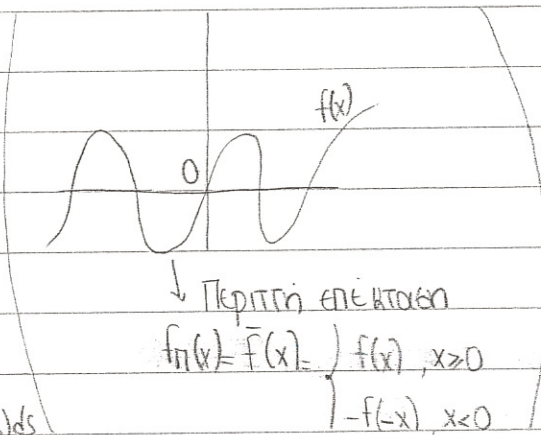 f(x)
0
↓ Περιττή επέκταση
fπ(x) = f̄(x) = { f(x), x≥0
-f(-x), x<0
)ds